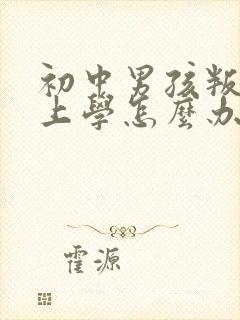 初中男孩叛
上學怎麼办
霍源